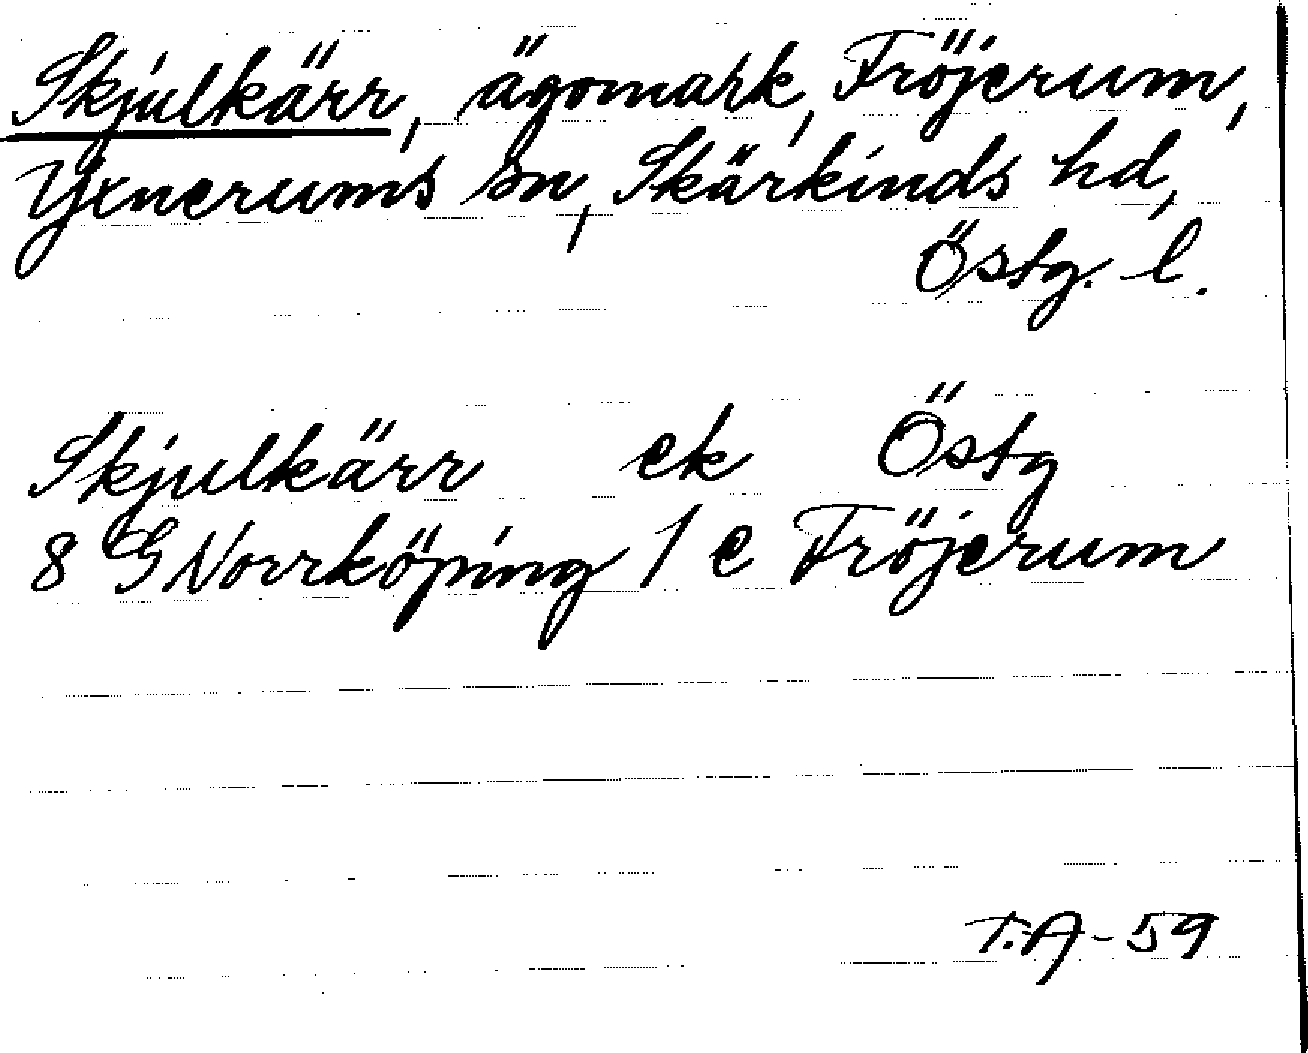 Skjulkärr, ägomark, Fröjerum,
Yxnerums sn, Skärkinds hd,
Östg. l.
Skjulkärr ek Östg
8 G Norrköping 1 e Fröjerum
T.A-59